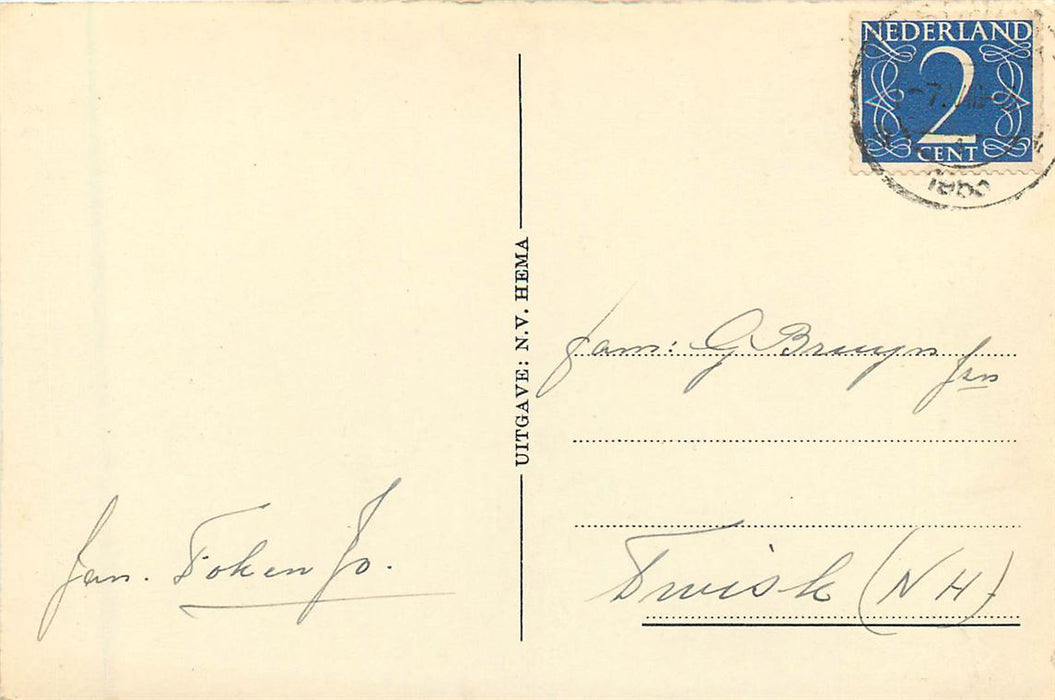 NEDERLAND
2
CENT
1950
UITGAVE: N.V. HEMA
fam: G Bruyn
Jzn
Twisk (NH)
fam. Token Jo.